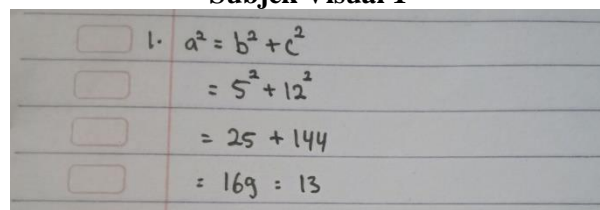 Subjek Visual 1
1. a² = b² + c²
= 5² + 12²
= 25 + 144
= 169 = 13